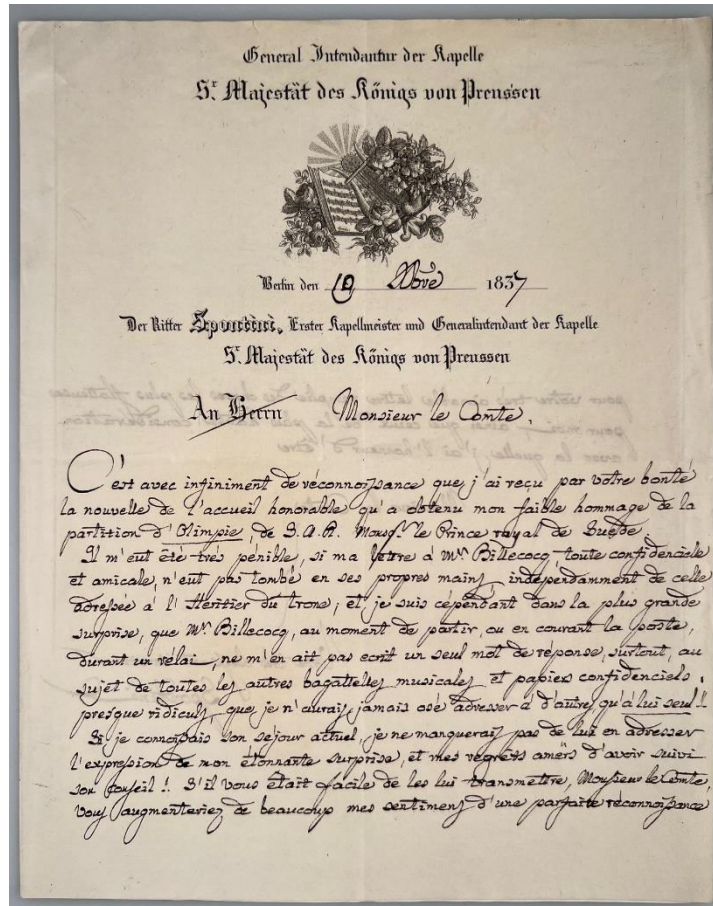 General Intendantur der Kapelle
Sr. Majestät des Königs von Preussen
Berlin den 19 Xbre 1837
Der Ritter Spontini, Erster Kapellmeister und Generalintendant der Kapelle
Sr. Majestät des Königs von Preussen
An Herrn Monsieur le Comte.
C'est avec infiniment de réconnoissance que j'ai reçu par votre bonté
la nouvelle de l'accueil honorable qu'a obtenu mon faible hommage de la
partition d'Olimpie, de S. A. R. Monsgr. le Prince royal de Suède.
Il m'eut été très pénible, si ma lettre à Mr. Billecocq, toute confidenciele
et amicale, n'eut pas tombé en ses propres mains, indépendamment de celle
adressée à l'Heritier du trone; et je suis cépendant dans la plus grande
surprise, que Mr. Billecocq, au moment de partir, ou en courant la poste,
durant un rélai, ne m'en ait pas ecrit un seul mot de réponse, surtout, au
sujet de toutes les autres bagattelles musicales et papiers confidenciels,
presque ridiculs, que je n'aurais jamais osé adresser à d'autres qu'à lui seul!!
Si je connoissais son sejour actuel, je ne manquerais pas de lui en adresser
l'expression de mon étonnante surprise, et mes régrets amèrs d'avoir suivi
son conseil!. S'il vous était facile de les lui transmettre, Monsieur le Comte,
vous augmenteriez de beaucoup mes sentimens d'une parfaite réconnoissance